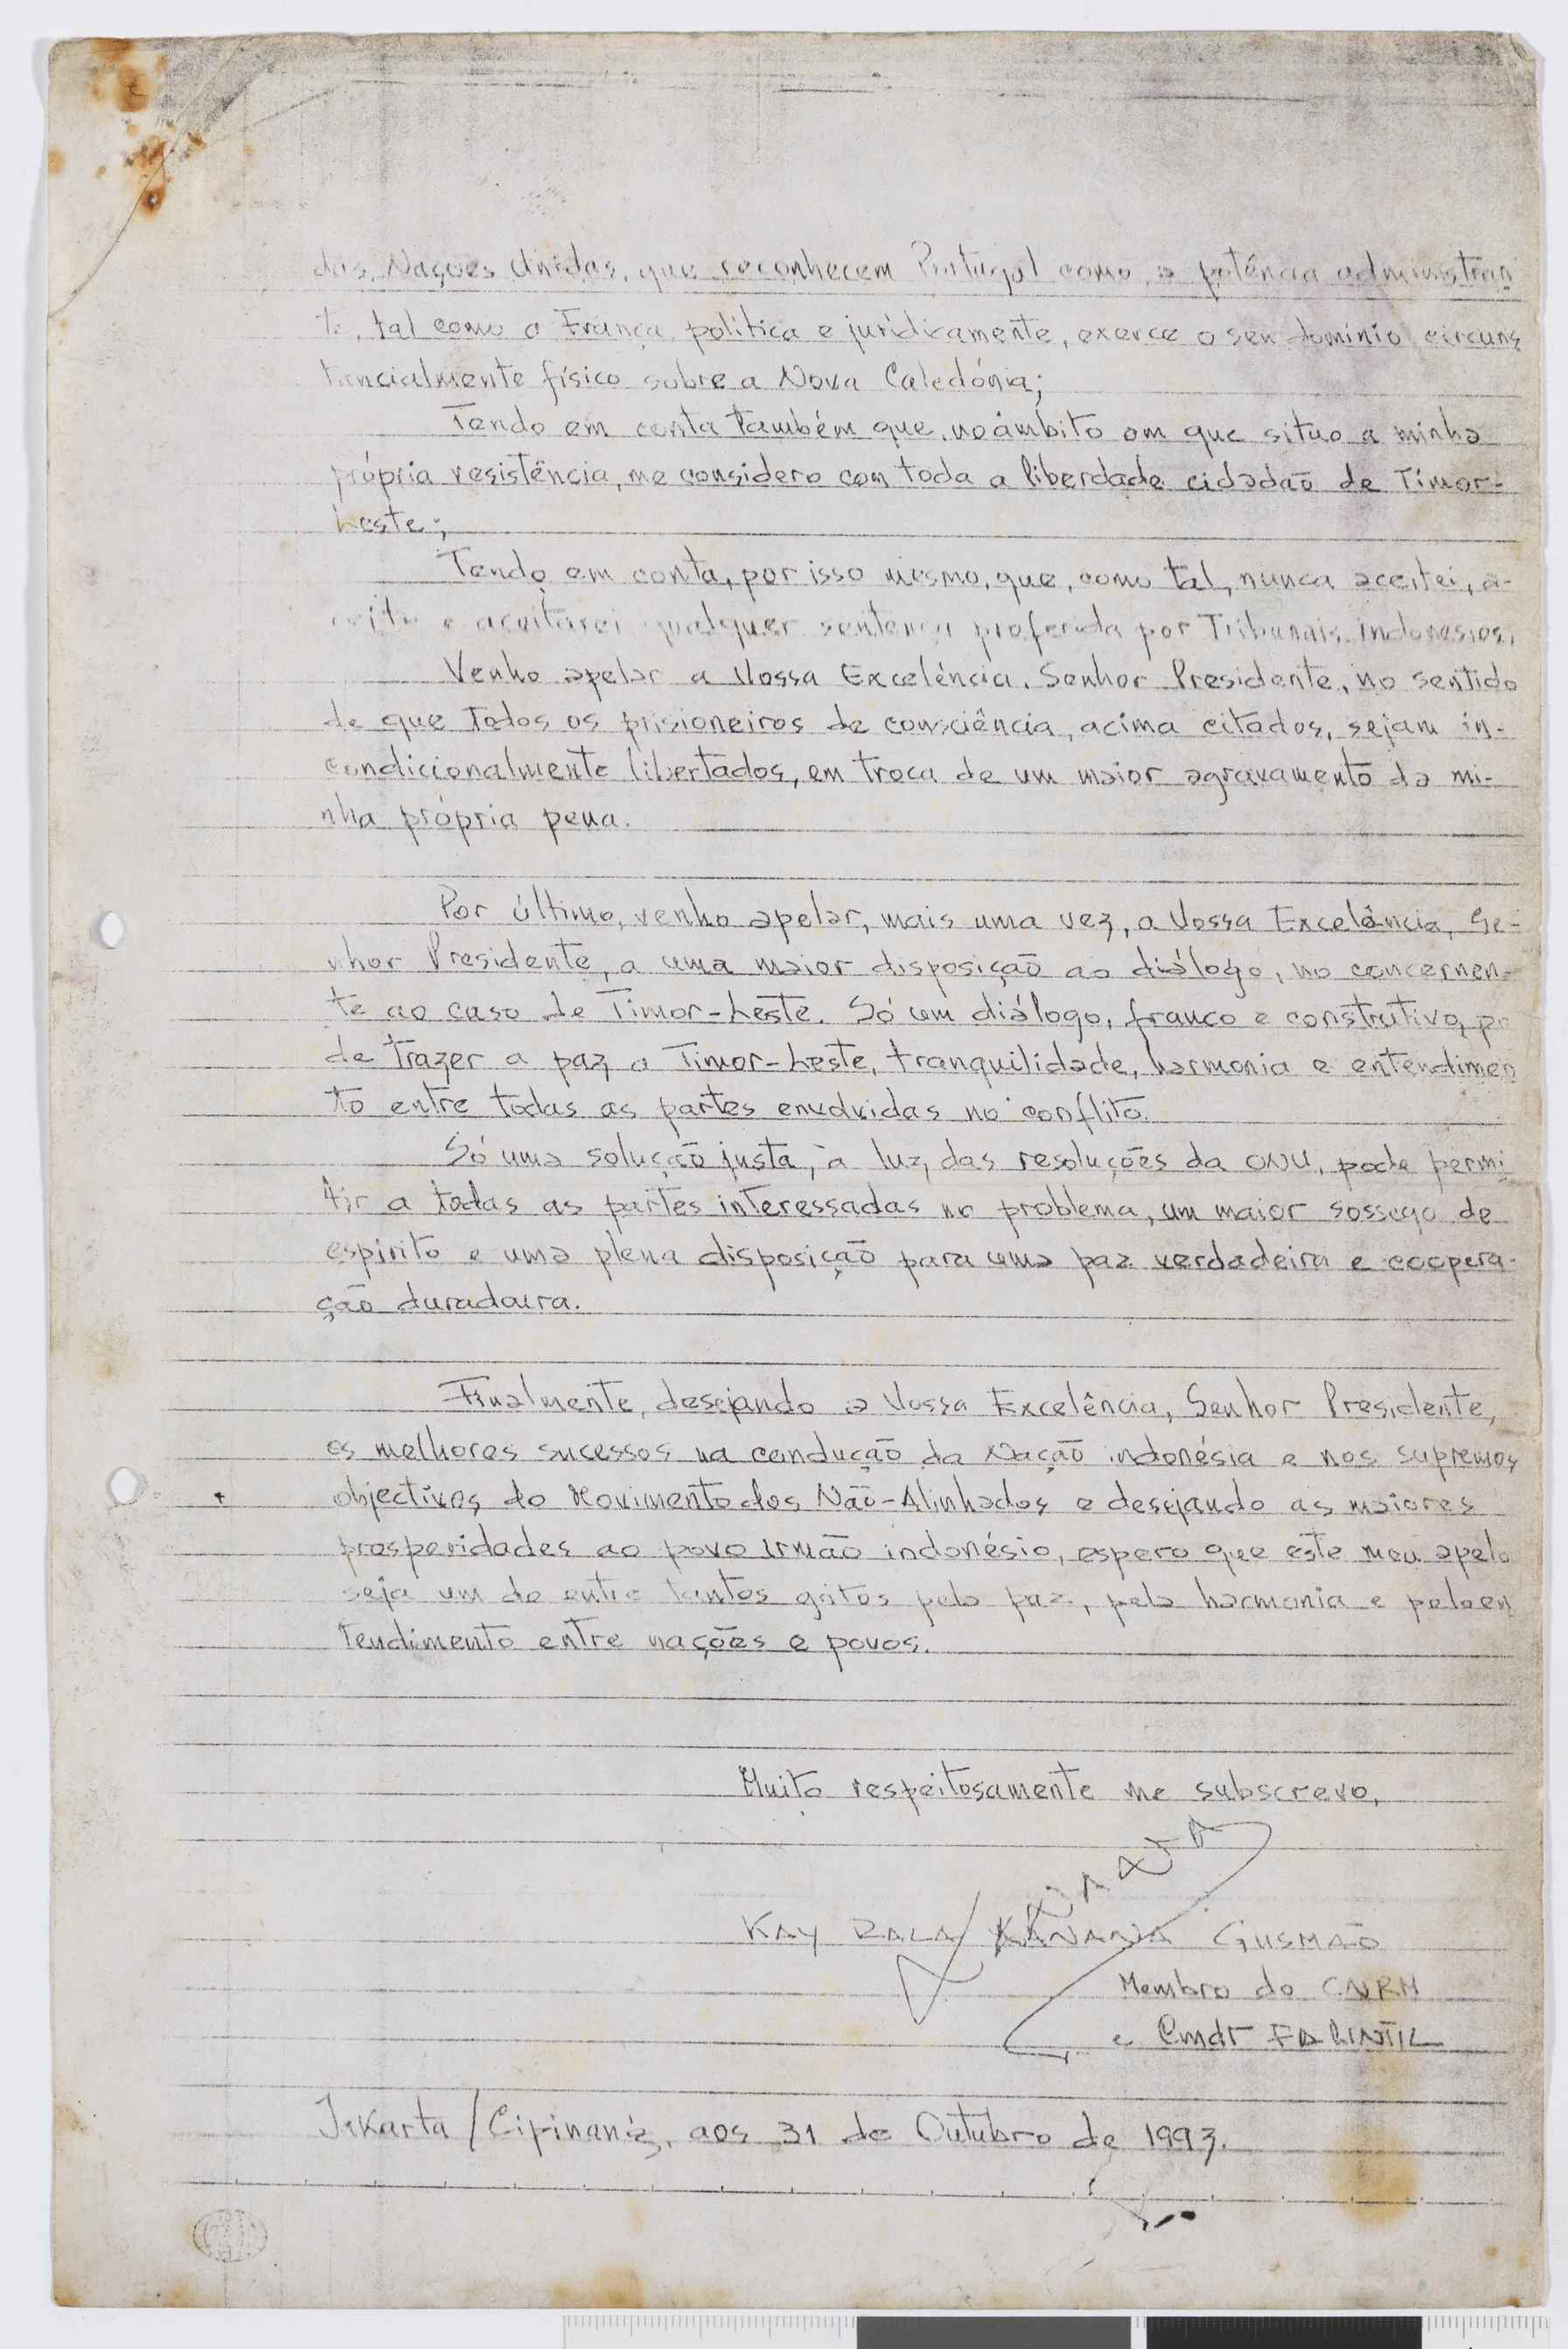 das Nações Unidas, que reconhecem Portugal como a potência administran
te, tal como a França, política e jurídicamente, exerce o seu domínio circuns
tancialmente físico sobre a Nova Caledónia;
Tendo em conta também que, no âmbito em que situo a minha
própria resistência, me considero com toda a liberdade cidadão de Timor-
Leste;
Tendo em conta, por isso mesmo, que, como tal, nunca aceitei, a-
ceito e aceitarei qualquer sentença proferida por Tribunais indonésios,
Venho apelar a Vossa Excelência, Senhor Presidente, no sentido
de que todos os prisioneiros de consciência, acima citados, sejam in-
condicionalmente libertados, em troca de um maior agravamento da mi-
nha própria pena.
Por último, venho apelar, mais uma vez, a Vossa Excelência, Se-
nhor Presidente, a uma maior disposição ao diálogo, no concernen-
te ao caso de Timor-Leste. Só um diálogo, franco e construtivo, po
de trazer a paz a Timor-Leste, tranquilidade, harmonia e entendimen
to entre todas as partes envolvidas no conflito.
Só uma solução justa, à luz das resoluções da ONU, pode permi
tir a todas as partes interessadas no problema, um maior sossego de
espírito e uma plena disposição para uma paz verdadeira e coopera-
ção duradoura.
Finalmente, desejando a Vossa Excelência, Senhor Presidente,
os melhores sucessos na condução da Nação indonésia e nos supremos
objectivos do Movimento dos Não-Alinhados e desejando as maiores
prosperidades ao povo irmão indonésio, espero que este meu apelo
seja um de entre tantos gritos pela paz, pela harmonia e pelo en
tendimento entre nações e povos.
Muito respeitosamente me subscrevo,
KAY RALA XANANA GUSMÃO
Membro do CNRM
e Cmdt FALINTIL
Jakarta/Cipinang, aos 31 de Outubro de 1993.